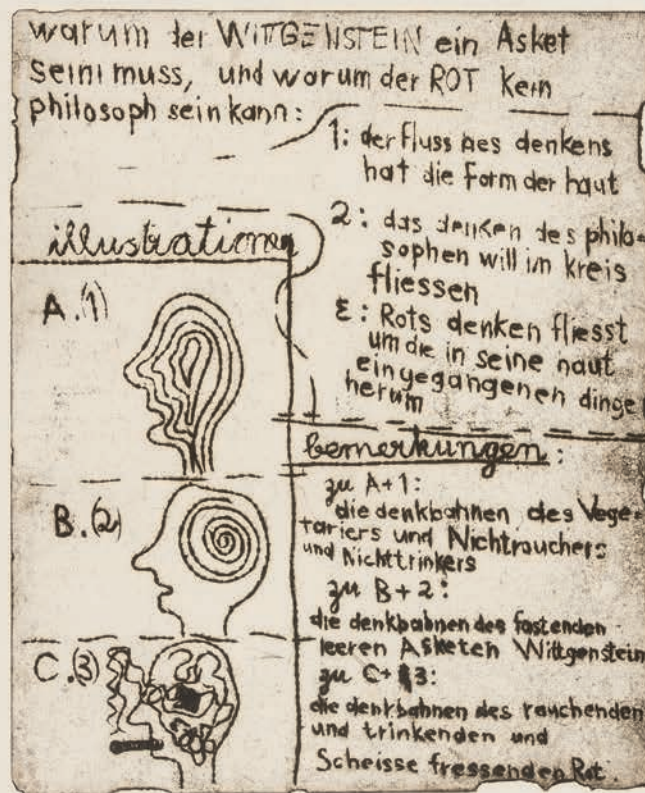 warum der WITTGENSTEIN ein Asket
sein muss, und warum der ROT kein
philosoph sein kann:
1: der fluss des denkens
hat die form der haut
2: das denken des philo=
sophen will im kreis
fliessen
3: Rots denken fliesst
um die in seine haut
eingegangenen dinge
herum
illustrationen
A.(1)
B.(2)
C.(3)
bemerkungen:
zu A+1:
die denkbahnen des Vege=
tariers und Nichtrauchers
und Nichttrinkers
zu B+2:
die denkbahnen des fastenden
leeren Asketen Wittgenstein
zu C+3:
die denkbahnen des rauchenden
und trinkenden und
Scheisse fressenden Rot.